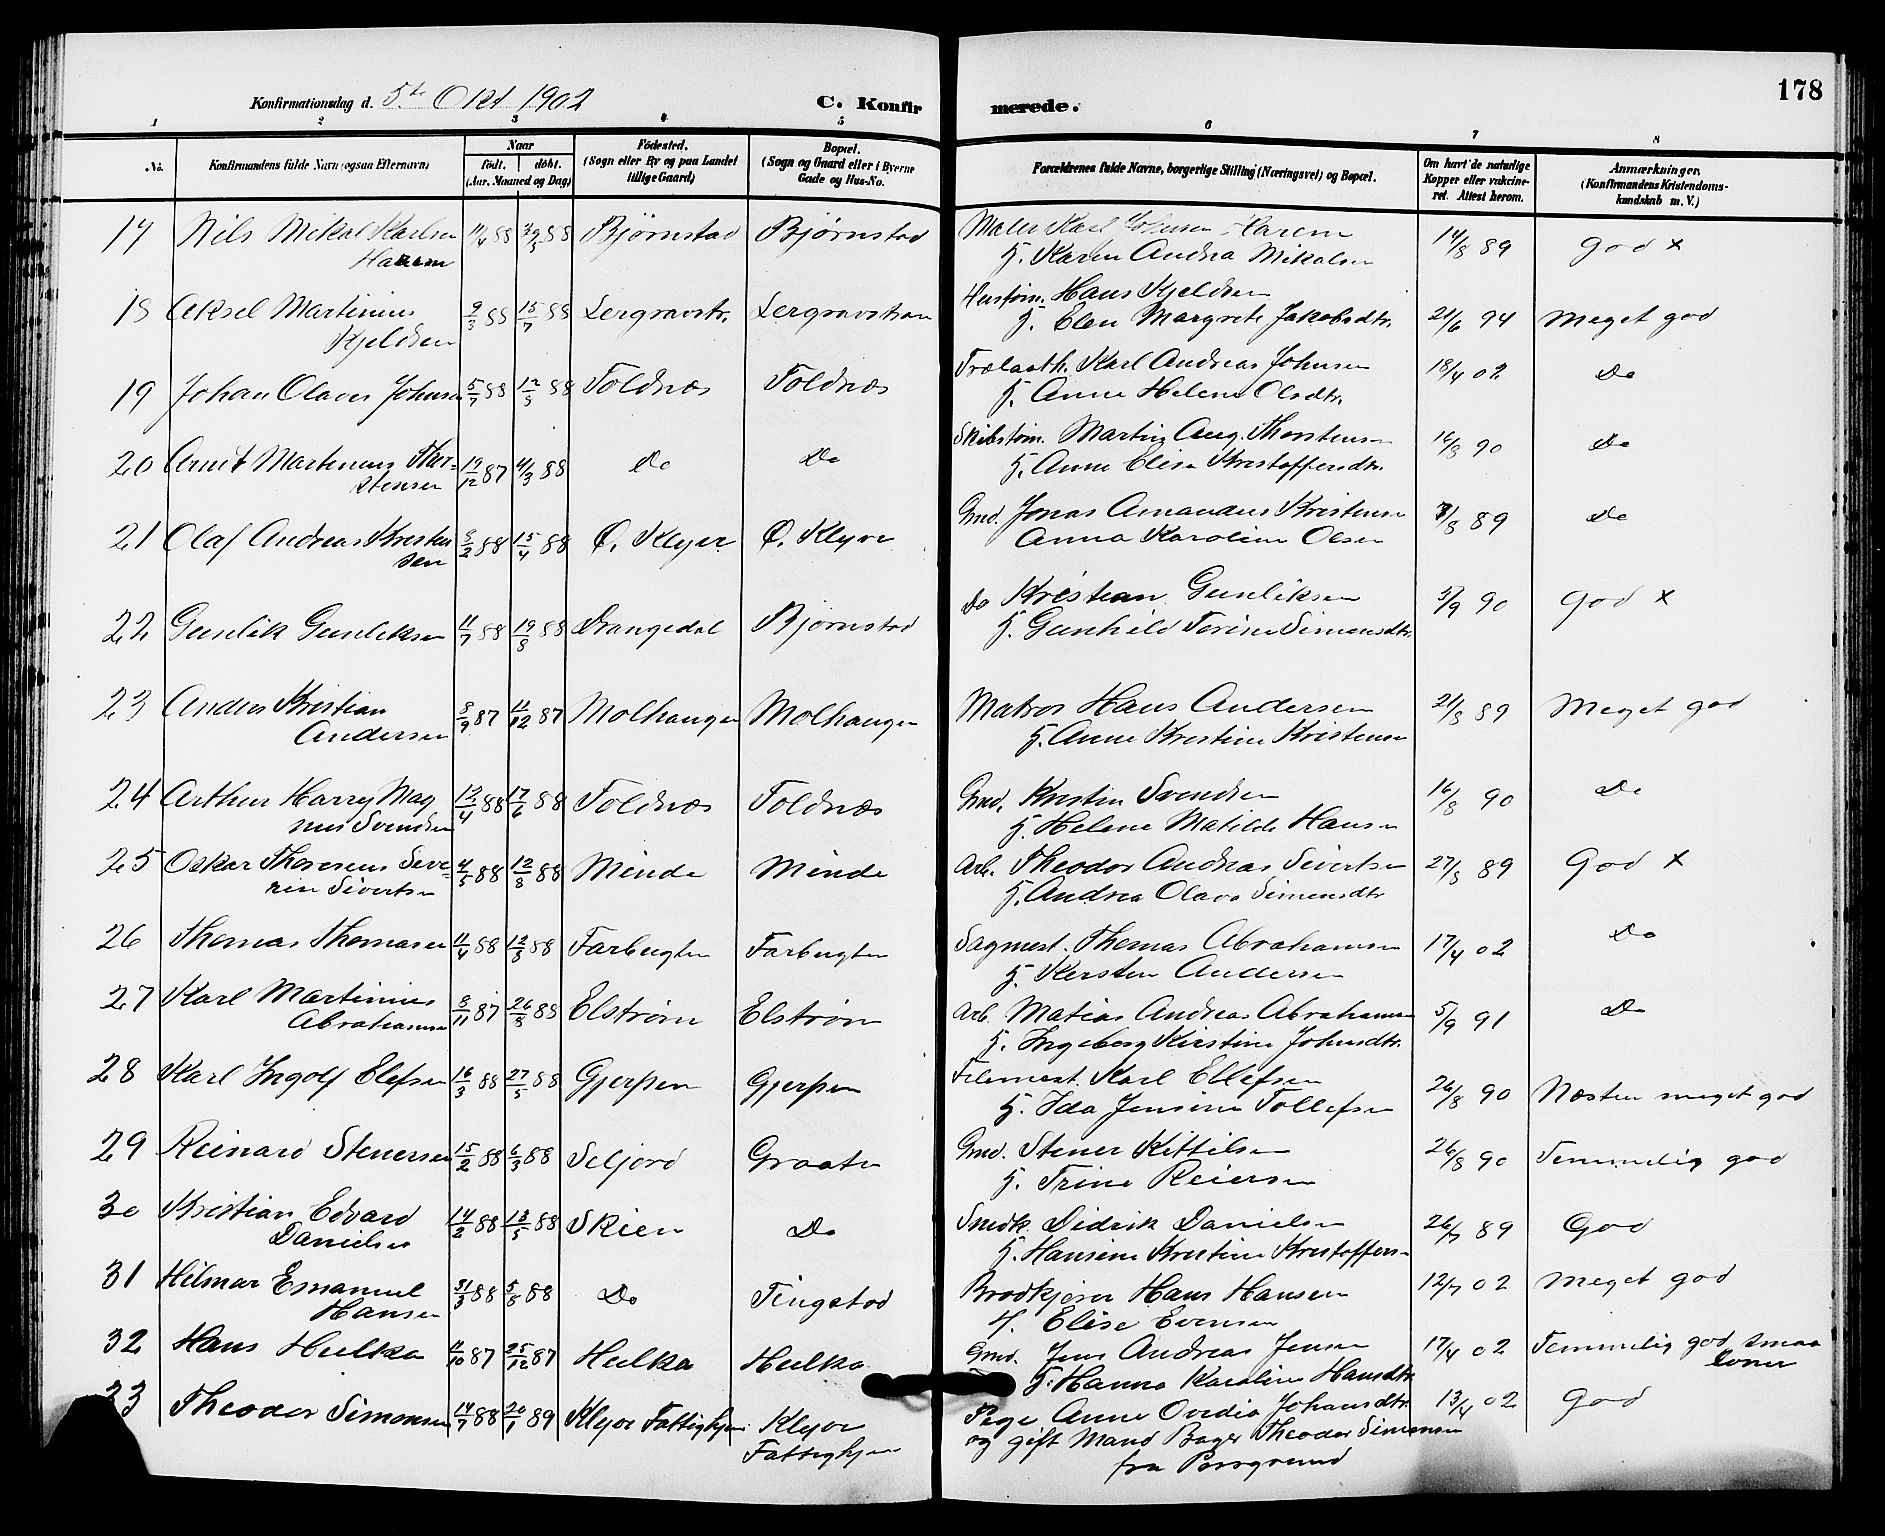 178
Konfirmationsdag d. 5te Okt 1902 C. Konfirmerede.
1 2 3 4 5 6 7 8
No. Konfirmandens fulde Navn (ogsaa Efternavn) Naar født. døbt. (Aar, Maaned og Dag) Fødested. (Sogn eller By og paa Landet tillige Gaard) Bopæl. (Sogn og Gaard eller i Byerne Gade og Hus-No. Forældrenes fulde Navne, borgerlige Stilling (Næringsvei) og Bopæl. Om havt de naturlige Kopper eller vakcineret. Attest herom. Anmærkninger. (Konfirmandens Kristendomskundskab m. V.)
17 Nils Mikal Karlsen 88 88 Bjørnstad Bjørnstad Maler Karl Johnsen Harem 14/8 89 God x
Harem H. Karen Andrea Mikalsen
18 Aksel Martinius 9/3 88 15/7 88 Lergravstr. Lergravstran Hans Kjeldsen
Kjeldsen H. Elen Margrete Jakobsdtr. 21/6 94 Meget god
19 Johan Olaves Johnsen 5/7 88 12/8 88 Toldnæs Toldnæs Karl Andreas Johnsen 18/4 02 Do
H. Anne Helene Olsdtr.
20 Arnt Martinius Thor- 19/12 87 4/3 88 Do Do Skibstøm. Martin Aug. Thorstensen 16/8 90 Do
stensen H. Anne Elise Kristoffersdtr.
21 Olaf Andreas Kristen 5/2 88 15/4 88 Ø. Klyve Ø. Klyve Gmd. Jonas Amandus Kristensen 89 Do
sen Anna Karoline Olsen
22 Gunlik Gunleksen 11/7 88 19/8 88 Drangedal Bjørnstad Do Kristian Gunliksen 5/9 90 God x
H. Gunhild Torine Simonsdtr.
23 Anders Kristian 8/9 87 11/12 87 Molhaugen Molhaugen Matros Hans Andersen 21/8 89 Meget god
Andersen H. Anne Kristine Kristensen
24 Arthur Harry Mag 12/4 88 17/6 88 Toldnæs Toldnæs Gmd. Kristen Svendsen 16/8 90 Do
nus Svendsen H. Helene Matilde Hansen
25 Oskar Thoresens Seve- 4/5 88 12/8 88 Minde Minde Arb. Theodor Andreas Sivertsen 27/8 89 God x
rin Sivertsen H. Andrea Olava Simensdtr
26 Thomas Thomasen 11/4 88 88 Farbugten Farbugten Sagmest. Thomas Abrahamsen 17/4 02 Do
H. Kersten Andersen
27 Karl Martinius 8/11 87 26/8 88 Elstrøm Elstrøm Arb. Matias Andreas Abrahamsen 5/9 91 Do
Abrahamsen H. Ingeborg Kirstine Johnsdtr.
28 Karl Ingolf Elefsen 16/3 88 27/5 88 Gjerpen Gjerpen Karl Ellefsen 26/8 90 Næsten meget god
H. Ida Jensine Tollefsen
29 Reinard Stenersen 15/2 88 6/3 88 Seljord Graaten Gmd. Stener Kittilsen 26/8 90 Temmelig god
H. Trine Reiersen
30 Kristian Edvard 14/2 88 13/5 88 Skien Do Snedk. Didrik Danielsen 89 God
Danielsen H. Hansine Kristine Kristoffers-
31 Hilmar Emanuel 31/3 88 5/8 88 Do Tingstad Brødkjører Hans Hansen 02 Meget god
Hansen H. Elise Evensen
32 Hans Hulka 11/10 87 25/12 87 Hulka Hulka Gmd. Jens Andreas Jensen 17/4 02 Temmelig god smaa
H. Hanna Karoline Hansdtr. Evner
33 Theodor Simonsen 14/7 88 20/1 89 Klyve Fattighjem Klyve Pige Anne Ovedia Johansdtr. 13/4 02 God
Fattighjem og gift Mand Bager Theodor Simonsen
fra Porsgrund